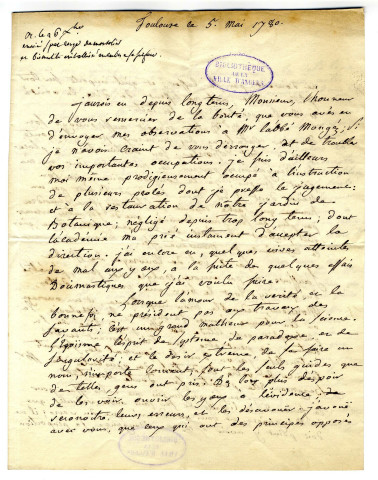 Toulouse le 5. Mai 1780.
BIBLIOTHEQUE
DE LA
VILLE D'ANGERS
jaurois eu depuis longtems, Monsieur, l'honneur
de vous remercier de la bonté, que vous avés eu
d'envoyer mes observations à Mr l'abbé Mongez, si
je n'avois craint de vous deranger, et de troubler
vos importantes occupations. je suis d'ailleurs
moi même prodigieusement occupé à l'instruction
de plusieurs procés dont je presse le jugement:
et à la restauration de notre jardin de
Botanique; négligé depuis trop long tems; dont
lacademie ma prié instament d'accepter la
direction. j'ai encore eu, quelques vives atteintes
de mal aux yeux, à la suite de quelques essais
Docimastiques que j'ai voulu faire.
Lorsque lamour de la verité et la
bonne foi ne président pas aux travaux des
savants, c'est un grand malheur pour la science.
L'égoisme, l'esprit de systeme de paradoxe et de
singularité; et le desir extreme de se faire un
nom, n'importe comment; sont les seuls guides que
de telles gens ont pris. Dès lors plus d'espoir
de les voir ouvrir les yeux à lévidence; de
reconoitre leurs erreurs, et les désavouer. j'avoüe
avec vous, que ceux qui ont des principes opposés